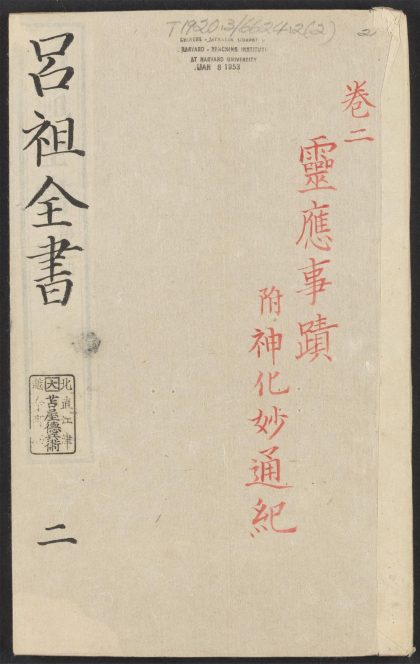 T 1920.3/6624.2(2) 2
CHINESE - JAPANESE LIBRARY
HARVARD - YENCHING INSTITUTE
AT HARVARD UNIVERSITY
JAN 8 1953
卷二
靈應事蹟
附神化妙通紀
呂祖全書
大
北
江津
二